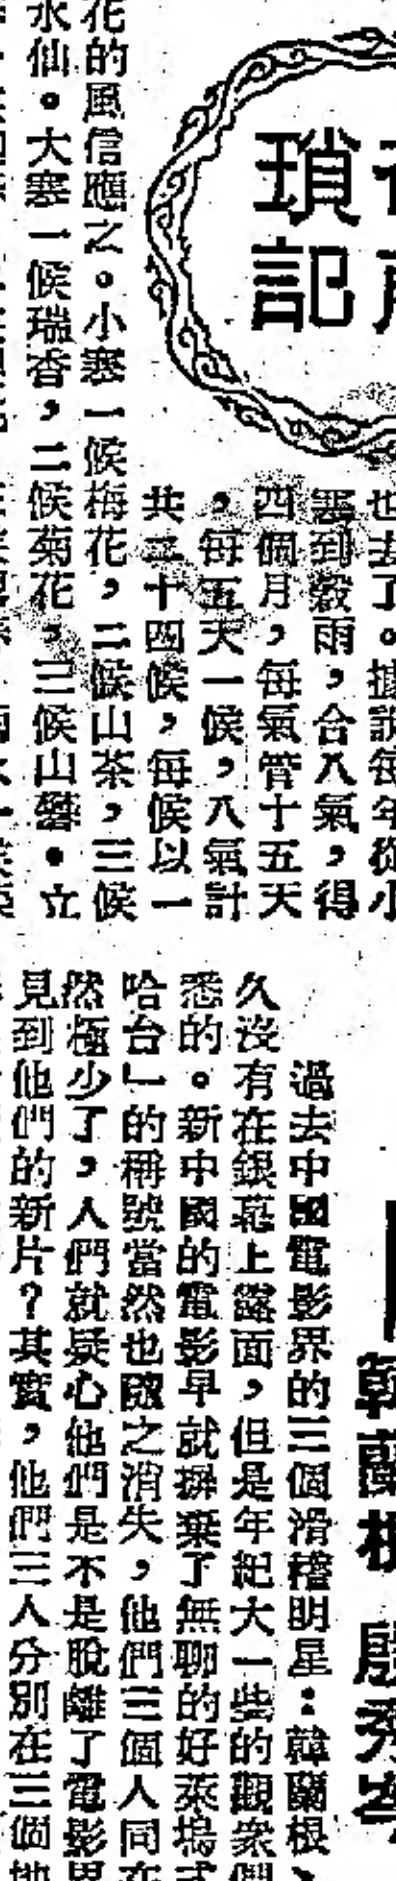 瑣
記
也去了。據說每年從小
寒到穀雨，合八氣，得
四個月，每氣管十五天
，每五天一候，八氣計
共二十四候，每候以一
花的風信應之。小寒一候梅花，二候山茶，三候
水仙。大寒一候瑞香，二候菊花，三候山礬。立
韓蘭根 殷秀岑
過去中國電影界的三個滑稽明星：韓蘭根、
久沒有在銀幕上露面，但是年紀大一些的觀衆們
悉的。新中國的電影早就摒棄了無聊的好萊塢式
哈台」的稱號當然也隨之消失，他們三個人同在
然極少了，人們就疑心他們是不是脫離了電影界
見到他們的新片？其實，他們三人分別在三個地